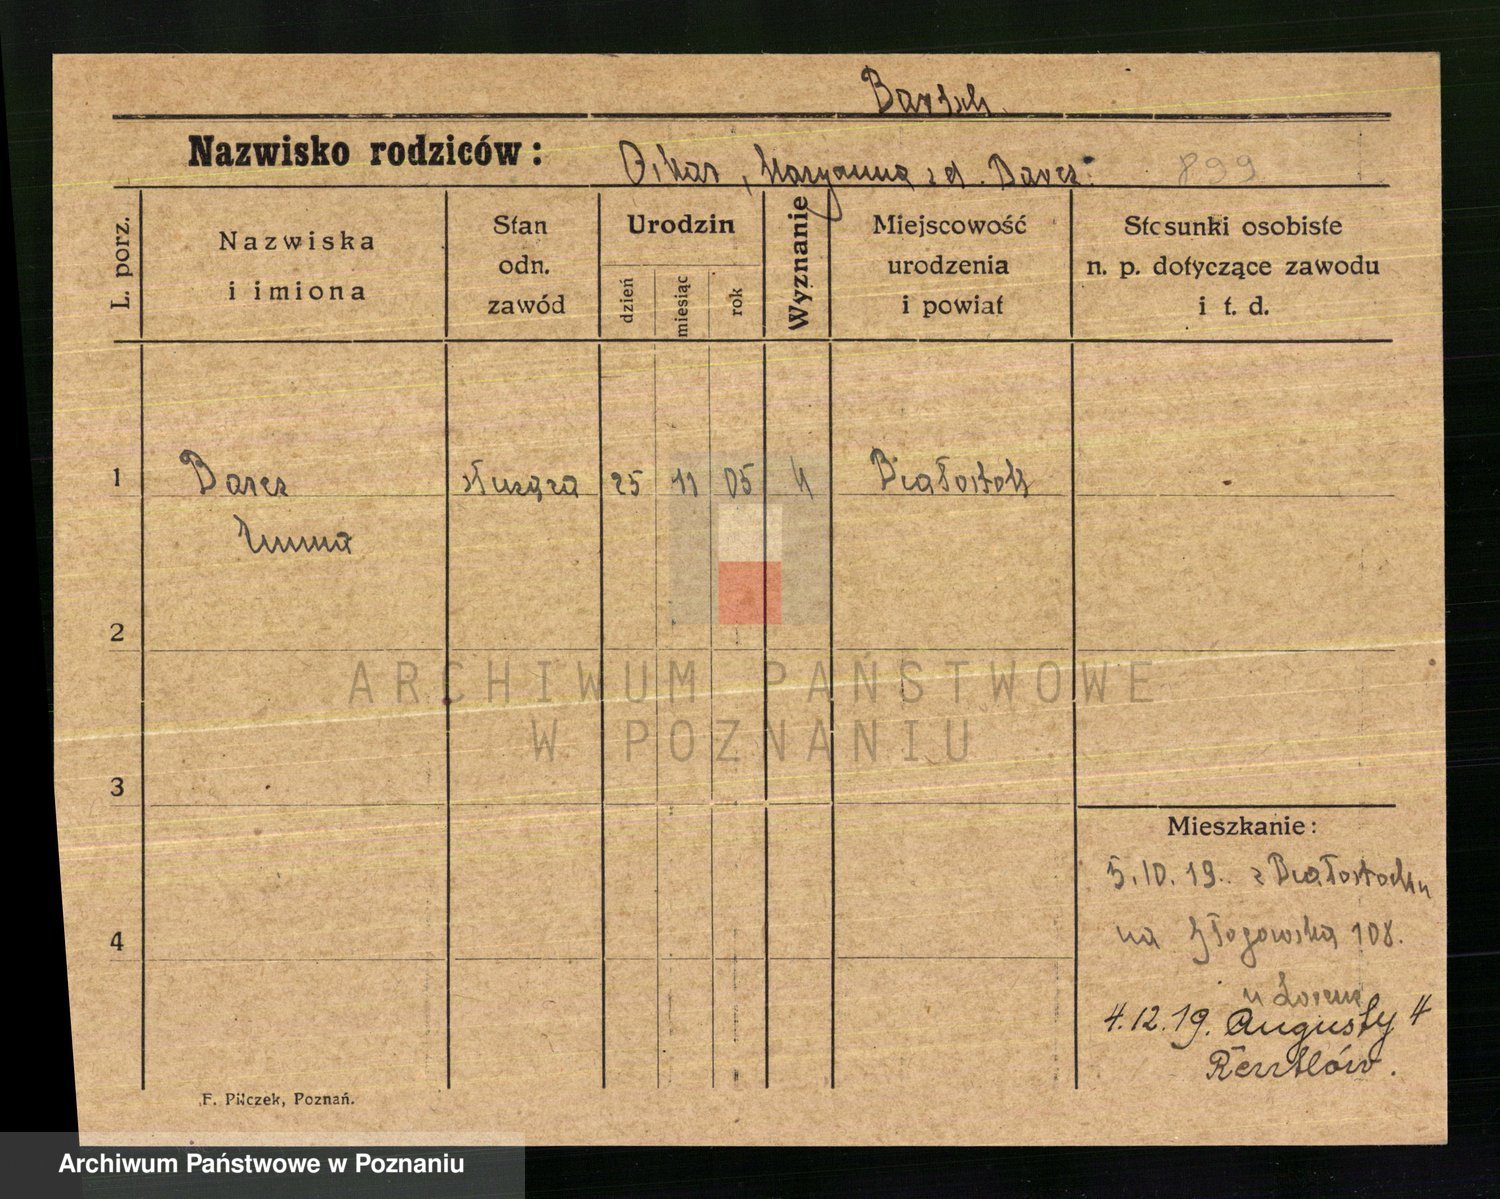 Bartsch.
Nazwisko rodziców: Oskar, Maryanna z d. Barcz.
899
L. porz.
Nazwiska i imiona
Stan odn. zawód
Urodzin
dzień
miesiąc
rok
Wyznanie
Miejscowość urodzenia i powiat
Stosunki osobiste n. p. dotyczące zawodu i t. d.
1 Barcz służąca 25 11 05 Białostok
Emma
2
ARCHIWUM PAŃSTWOWE
W POZNANIU
3
Mieszkanie:
5.10.19. z Białostocku
na Głogowska 108.
4
u
4.12.19. Augusty 4
F. Pilczek, Poznań.
Archiwum Państwowe w Poznaniu